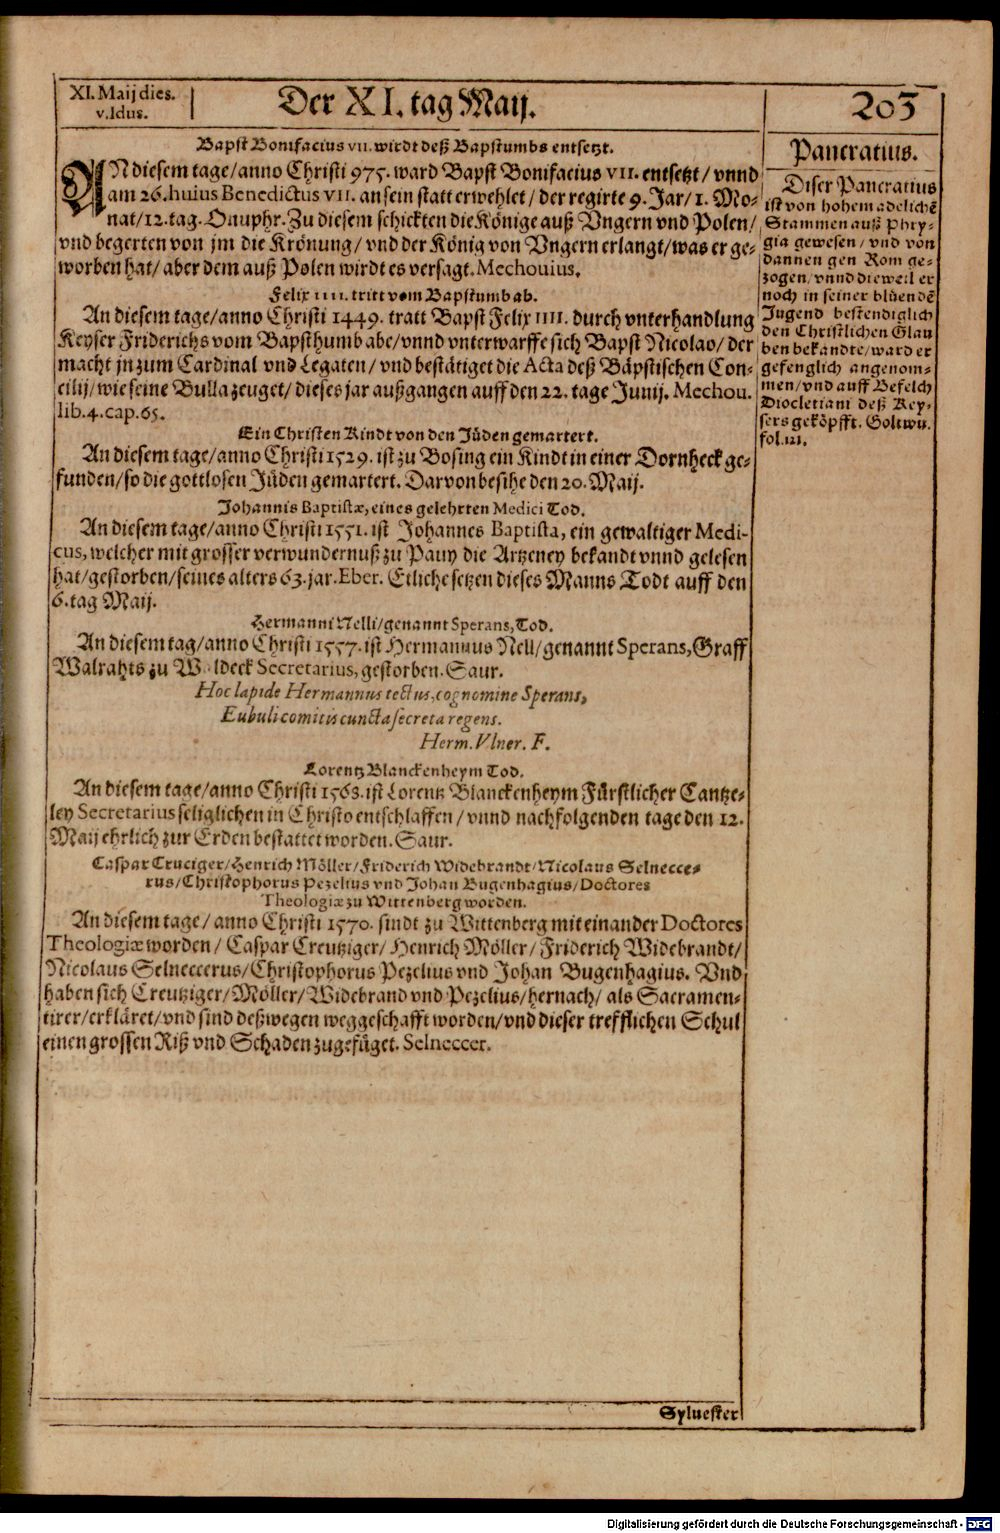 XI. Maij dies.
v. Idus.
Der XI. tag Maij.
203
Bapst Bonifacius VII. wirdt deß Bapstumbs entsetzt.
AN diesem tage/anno Christi 975. ward Bapst Bonifacius VII. entsetzt/ vnnd
am 26. huius Benedictus VII. an sein statt erwehlet/ der regirte 9. Jar/ 1. Mo-
nat/12. tag. Onuphr. Zu diesem schickten die Könige auß Vngern vnd Polen/
vnd begerten von jm die Krönung/ vnd der König von Vngern erlangt/was er ge-
worben hat/ aber dem auß Polen wirdt es versagt. Mechouius.
Felix IIII. tritt vom Bapstumb ab.
An diesem tage/anno Christi 1449. tratt Bapst Felix IIII. durch vnterhandlung
Keyser Friderichs vom Bapsthumb abe/ vnnd vnterwarffe sich Bapst Nicolao/ der
macht jn zum Cardinal vnd Legaten/ vnd bestätiget die Acta deß Bäpstischen Con-
cilij/ wie seine Bulla zeuget/ dieses jar außgangen auff den 22. tage Junij. Mechou.
lib. 4. cap. 65.
Ein Christen Kindt von den Jüden gemartert.
An diesem tage/anno Christi 1529. ist zu Bosing ein Kindt in einer Dornheck ge-
funden/so die gottlosen Jüden gemartert. Darvon besihe den 20. Maij.
Johannis Baptistæ, eines gelehrten Medici Tod.
An diesem tage/anno Christi 1551. ist Johannes Baptista, ein gewaltiger Medi-
cus, welcher mit grosser verwundernuß zu Pauy die Artzeney bekandt vnnd gelesen
hat/gestorben/seines alters 63. jar. Eber. Etliche setzen dieses Manns Todt auff den
6. tag Maij.
Hermanni Nelli/genannt Sperans, Tod.
An diesem tag/anno Christi 1557. ist Hermannus Nell/genannt Sperans, Graff
Walrahts zu W ldeck Secretarius, gestorben. Saur.
Hoc lapide Hermannus tectus, cognomine Sperans,
Eubuli comitis cuncta secreta regens.
Herm. Vlner. F.
Lorentz Blanckenheym Tod.
An diesem tage/anno Christi 1563. ist Lorentz Blanckenheym Fürstlicher Cantze-
ley Secretarius seliglichen in Christo entschlaffen/ vnnd nachfolgenden tage den 12.
Maij ehrlich zur Erden bestattet worden. Saur.
Caspar Cruciger/Henrich Möller/Friderich Widebrandt/Nicolaus Selnecce-
rus/Christophorus Pezelius vnd Johan Bugenhagius/Doctores
Theologiæ zu Wittenberg worden.
An diesem tage/ anno Christi 1570. sindt zu Wittenberg mit einander Doctores
Theologiæ worden/ Caspar Creutziger/ Henrich Möller/ Friderich Widebrandt/
Nicolaus Selneccerus/Christophorus Pezelius vnd Johan Bugenhagius. Vnd
haben sich Creutziger/Möller/Widebrand vnd Pezelius/hernach/ als Sacramen-
tirer/erkläret/vnd sind deßwegen weggeschafft worden/vnd dieser trefflichen Schul
einen grossen Riß vnd Schaden zugefüget. Selneccer.
Pancratius.
Diser Pancratius
ist von hohem adelichē
Stammen auß Phry-
gia gewesen/ vnd von
dannen gen Rom ge-
zogen/ vnnd dieweil er
noch in seiner blüendē
Jugend bestendiglich
den Christlichen Glau
ben bekandte/ward er
gefenglich angenom-
men/ vnd auff Befelch
Diocletiani deß Key-
sers geköpfft. Goltwu.
fol. 121.
Syluester
Digitalisierung gefördert durch die Deutsche Forschungsgemeinschaft - DFG